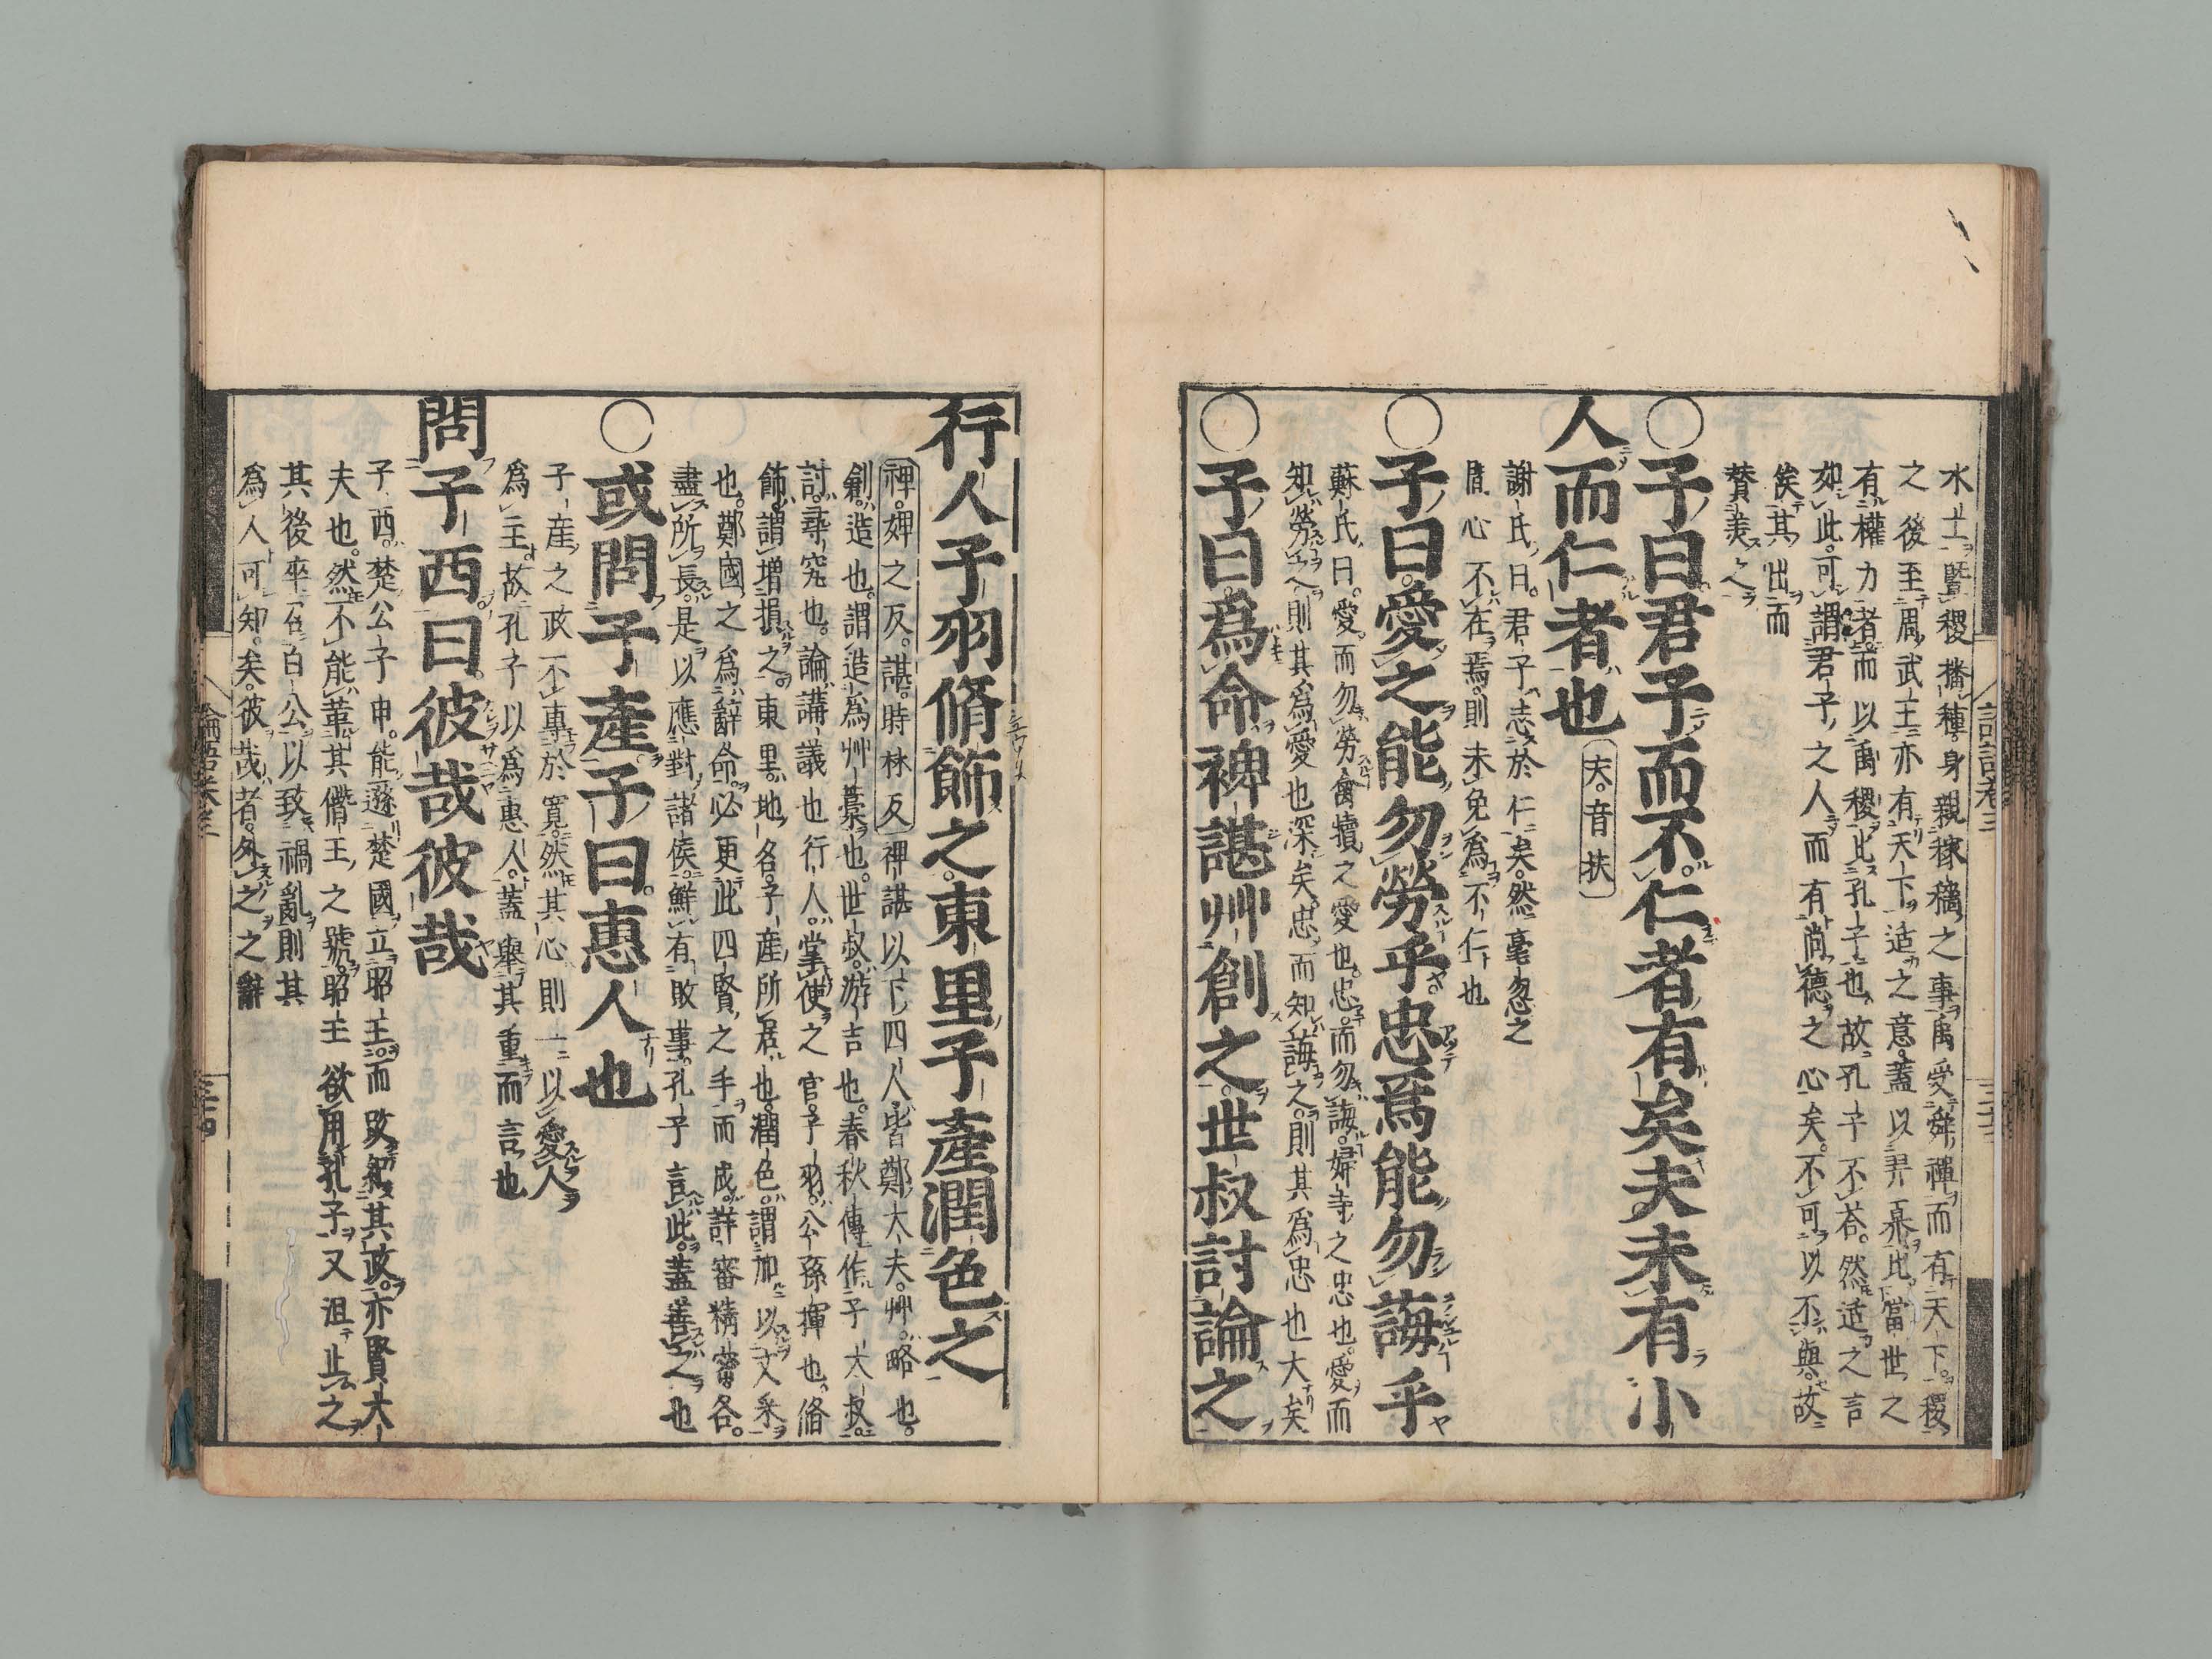 水土曁稷播種身親稼穡之事禹受舜禪而有天下稷
之後至周武王亦有天下适之意蓋以羿奡比當世之
有權力者而以禹稷比孔子也故孔子不荅然适之言
如此可謂君子之人而有尚德之心矣不可以不與故
俟其出而
賛美之
〇子曰君子而不仁者有矣夫未有小
人而仁者也 夫音扶
謝氏曰君子志於仁矣然毫忽之
間心不在焉則未免爲不仁也
〇子曰愛之能勿勞乎忠焉能勿誨乎
蘇氏曰愛而勿勞禽犢之愛也忠而勿誨婦寺之忠也愛而
知勞之則其爲愛也深矣忠而知誨之則其爲忠也大矣
〇子曰爲命裨諶艸創之世叔討論之
行人子羽脩飾之東里子產潤色之
裨婢之反諶時林反 裨諶以下四人皆鄭大夫艸略也
創造也謂造爲艸藁也世叔游吉也春秋傳作子太叔
討尋究也論講議也行人掌使之官子羽公孫揮也脩
飾謂增損之東里地名子產所居也潤色謂加以文采
也鄭國之爲辭命必更此四賢之手而成詳審精密各
盡所長是以應對諸侯鮮有敗事孔子言此蓋善之也
〇或問子產子曰惠人也
子產之政不專於寬然其心則一以愛人
爲主故孔子以爲惠人蓋舉其重而言也
問子西曰彼哉彼哉
子西楚公子申能遜楚國立昭王而改紀其政亦賢大
夫也然不能革其僭王之號昭王欲用孔子又沮止之
其後卒召白公以致禍亂則其
爲人可知矣彼哉者外之之辭